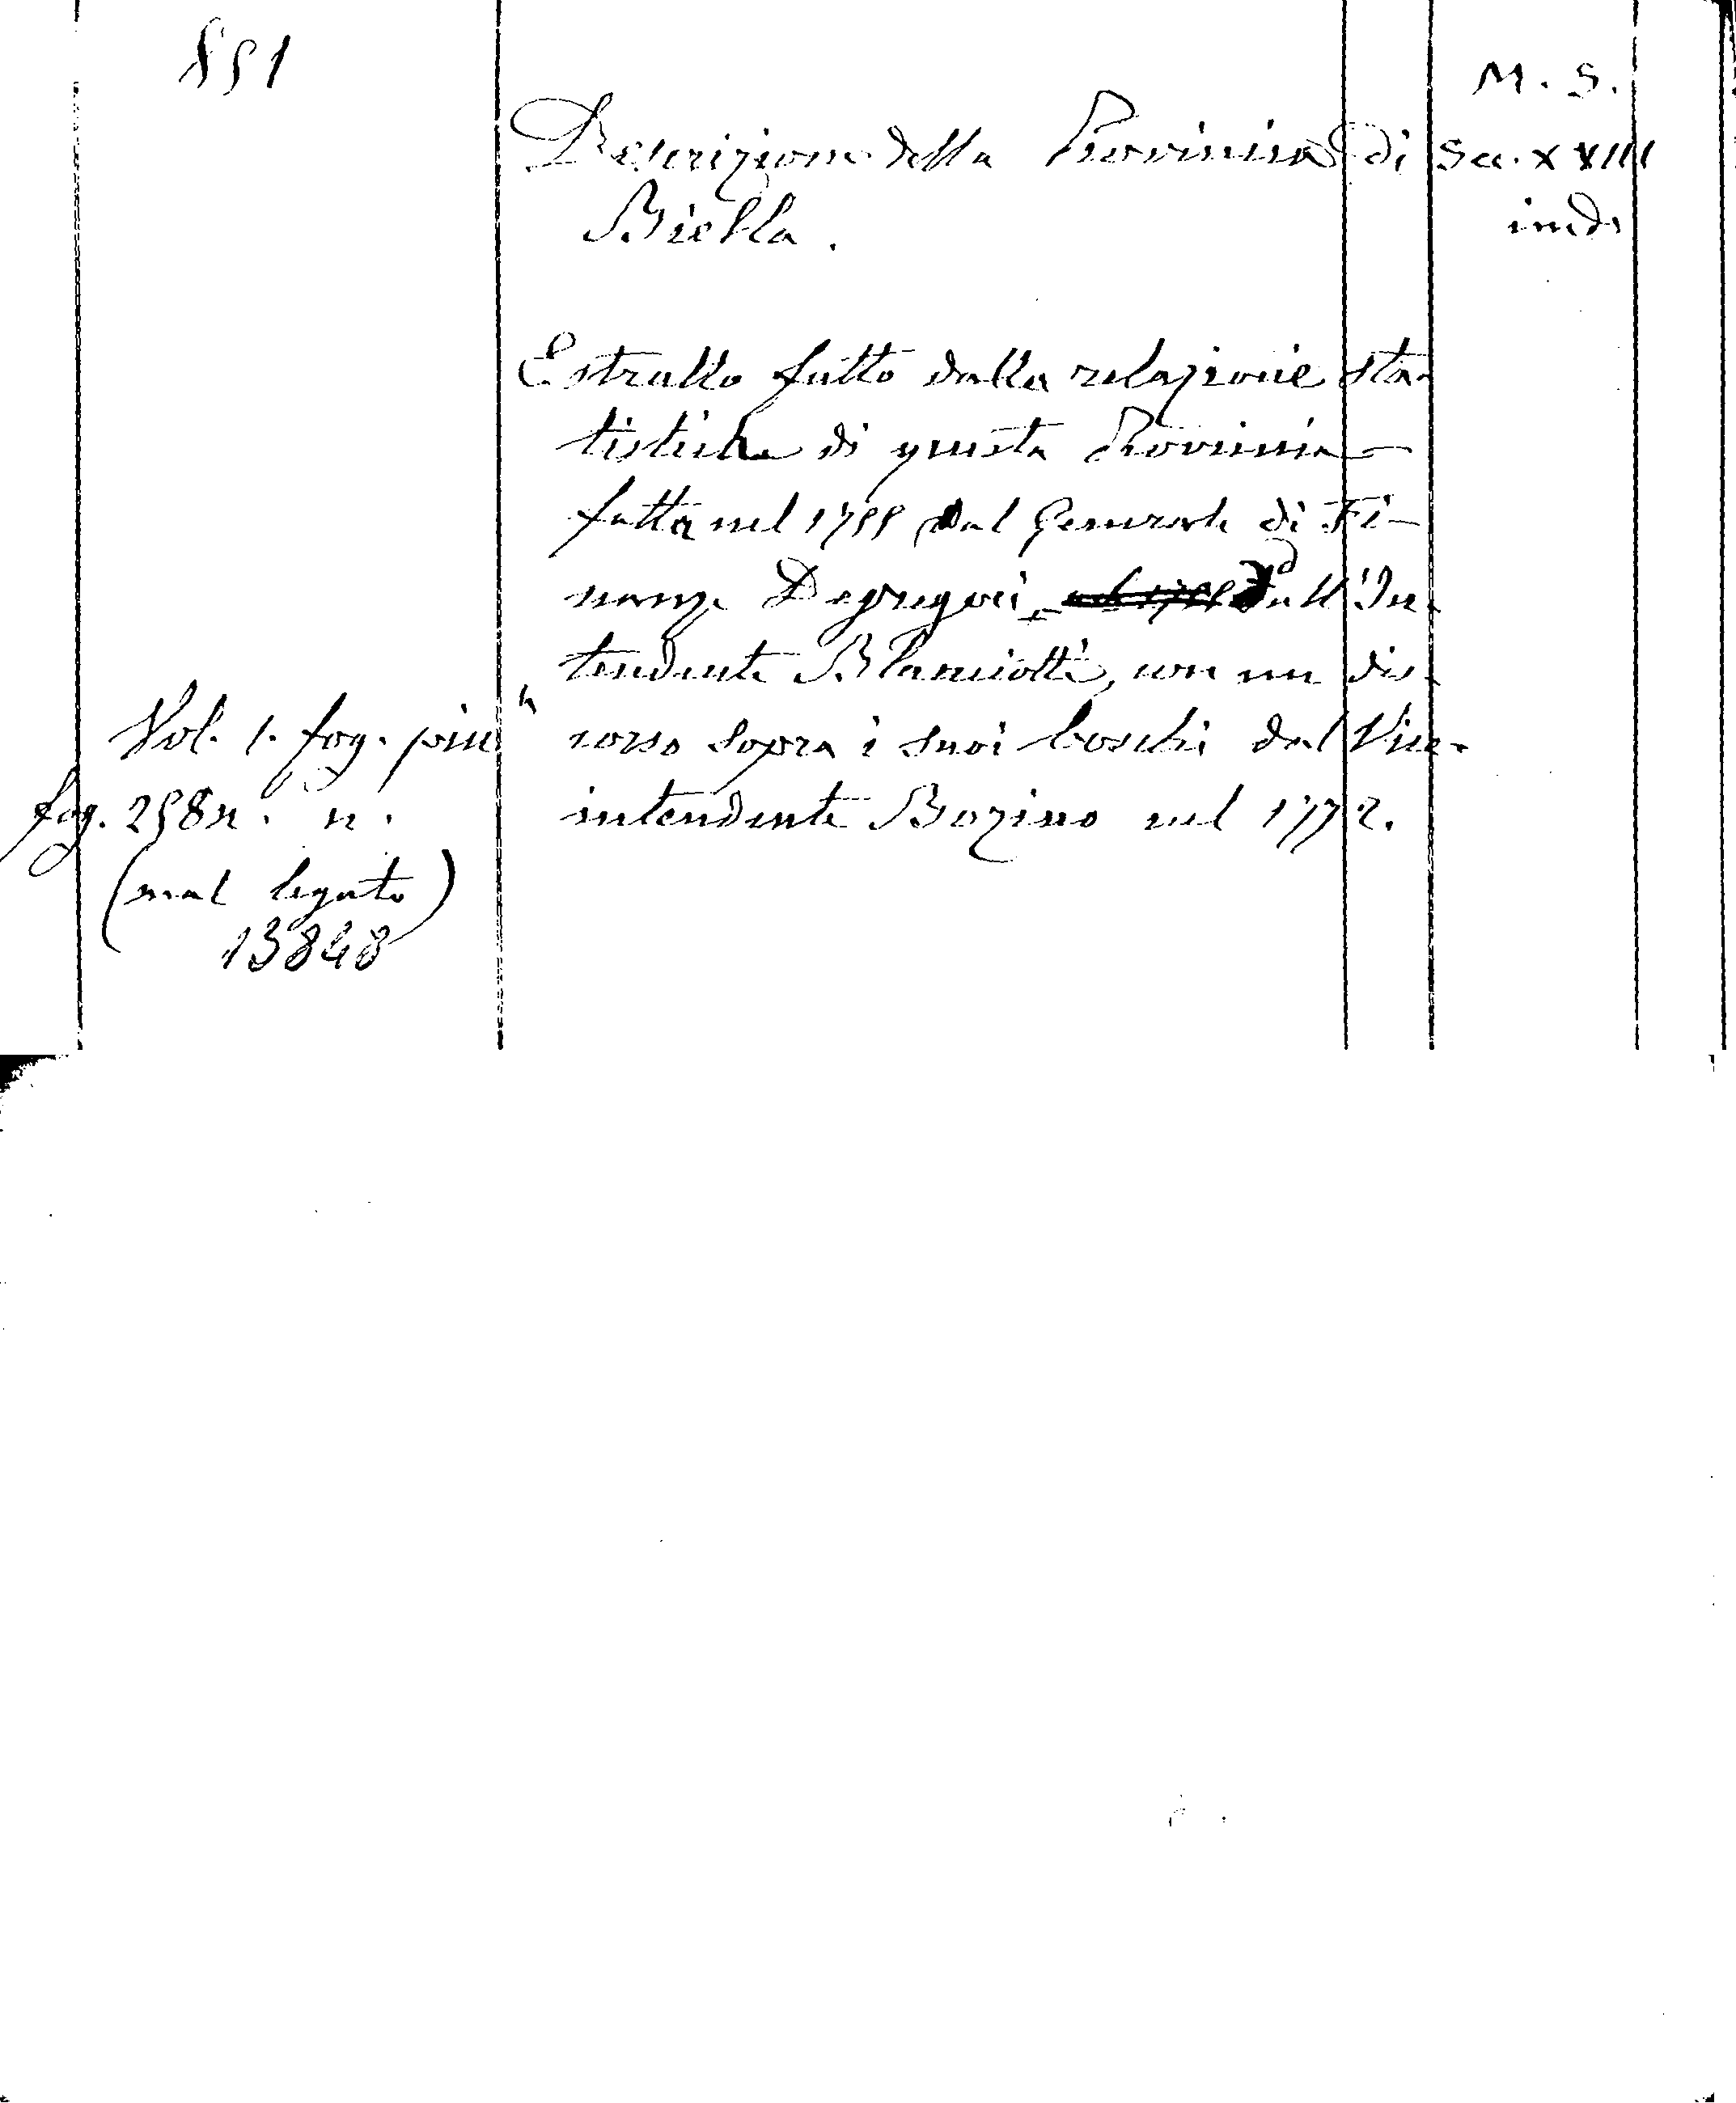 851
M. S.
Descrizione della Provincia di
Sec. XVIII
Biella.
ined.
Estratto fatto dalla relazione sta-
tistica di questa Provincia
fatta nel 1755 dal Generale di Fi-
nanze Degregori, e dall'In-
tendente Blanciotti, con un dis-
corso sopra i suoi boschi del Vice-
intendente Bozino nel 1772.
Vol. 1. fog. picc.
fog. 258 n. n.
(mal legato)
13848